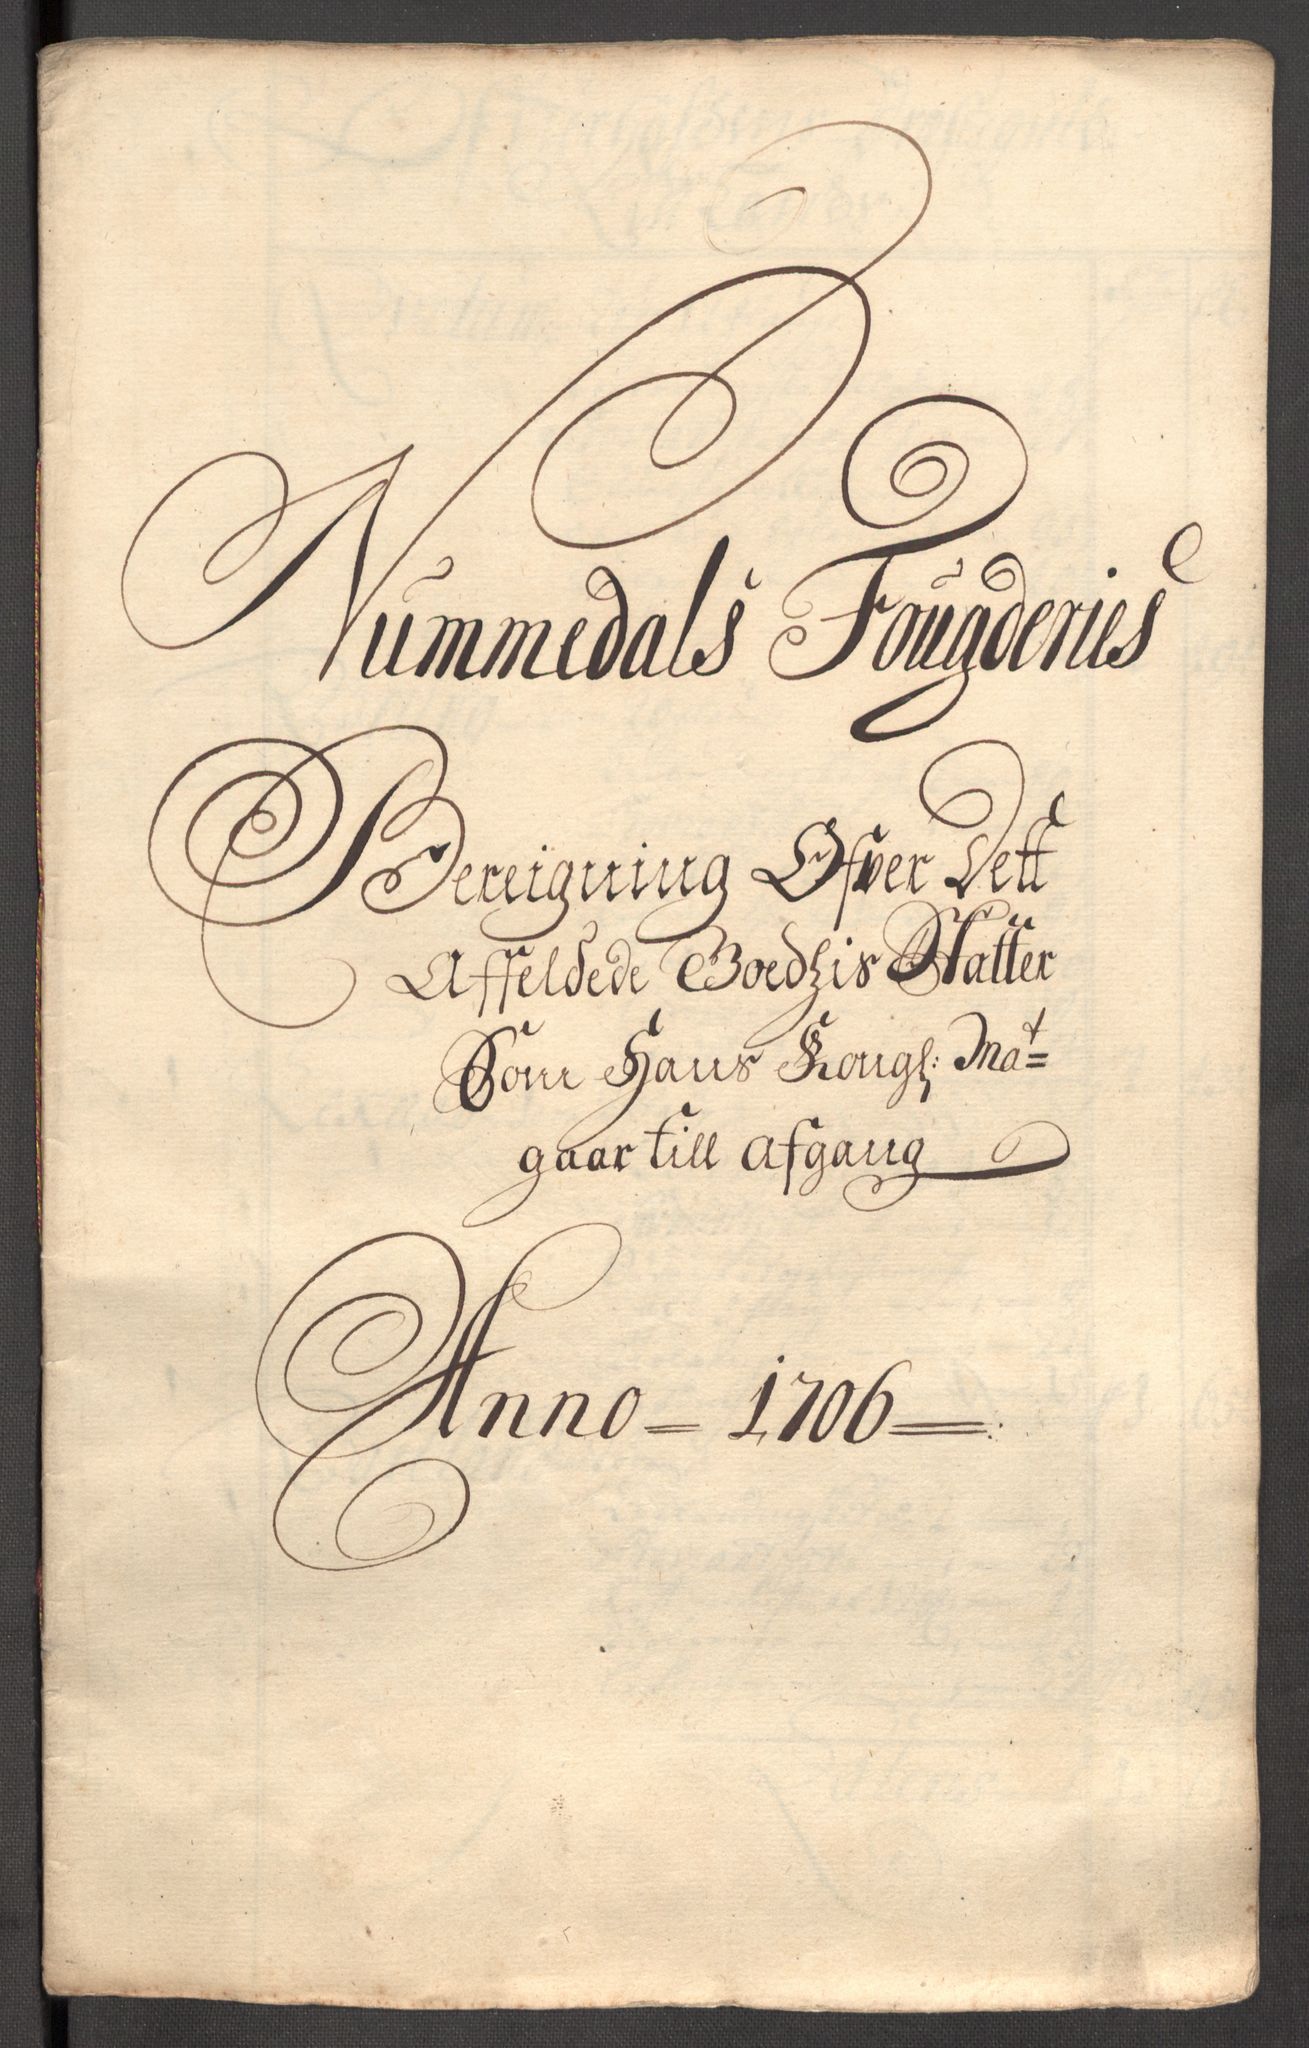 Nummedals Fougderies
Bereigning Ofver Dett
Affeldede Boedzis Skatter
Som Hans Kongl: Mat=
gaar till afgang
Anno = 1706 =